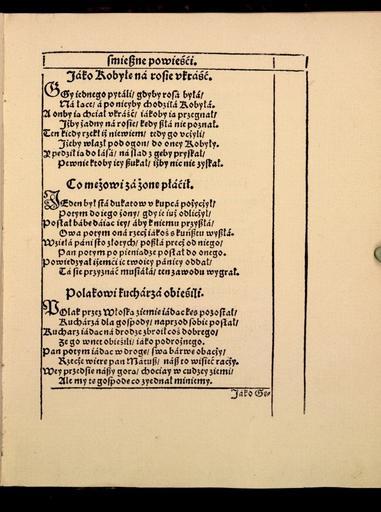 śmieszne powieści.
Jáko Kobyłe ná rosie vkráść.
GGy iednego pytáli/ gdyby rosá byłá/
Ná łące/ á po niey by chodziłá Kobyłá.
A on by ią chciał vkráść/ iákoby ią przegnał/
Jżby żadny ná rosie/ kędy szłá nie poznał.
Ten kiedy rzekł iż niewiem/ tedy go vcżyli/
Jżeby wlazł pod ogon/ do oney Kobyły.
Y pędził ią do lásá/ ná ślad z gęby pryskał/
Pewnie ktoby iey szukał/ iżby nic nie zyskał.
Co mężowi zá żonę płáćił.
JEden był stá dukatow v kupcá pożycżył/
Potym do iego żony/ gdy ie iuż odlicżył/
Posłał bábę dáiąc iey/ áby k niemu przyszłá/
Owá potym oná rzecż iákoś s kunsztu wyszłá.
Wźięłá páni sto złotych/ poszłá precż od niego/
Pan potym po pieniądze posłał do onego.
Powiedzyał iżem ći ie twoiey pániey oddał/
Tá sie przyznáć muśiáłá/ ten zawodu wygrał.
Polakowi kuchárzá obieśili.
POlak przez Włoską źiemię iádąc kęs pozostał/
Kuchárzá dla gospody/ naprzod sobie posłał/
Kucharz iádąc ná drodze zbroił coś dobrego/
Że go wnet obieśili/ iáko podrożnego.
Pan potym iádąc w drogę/ swą bárwę obacży/
Rzecże wierę pan Mátusz/ nász to wiśieć racży.
Wey przedsię nászy gorą/ choćiay w cudzey źiemi/
Ale my tę gospodę co zyednał miniemy.
Jáko Se=